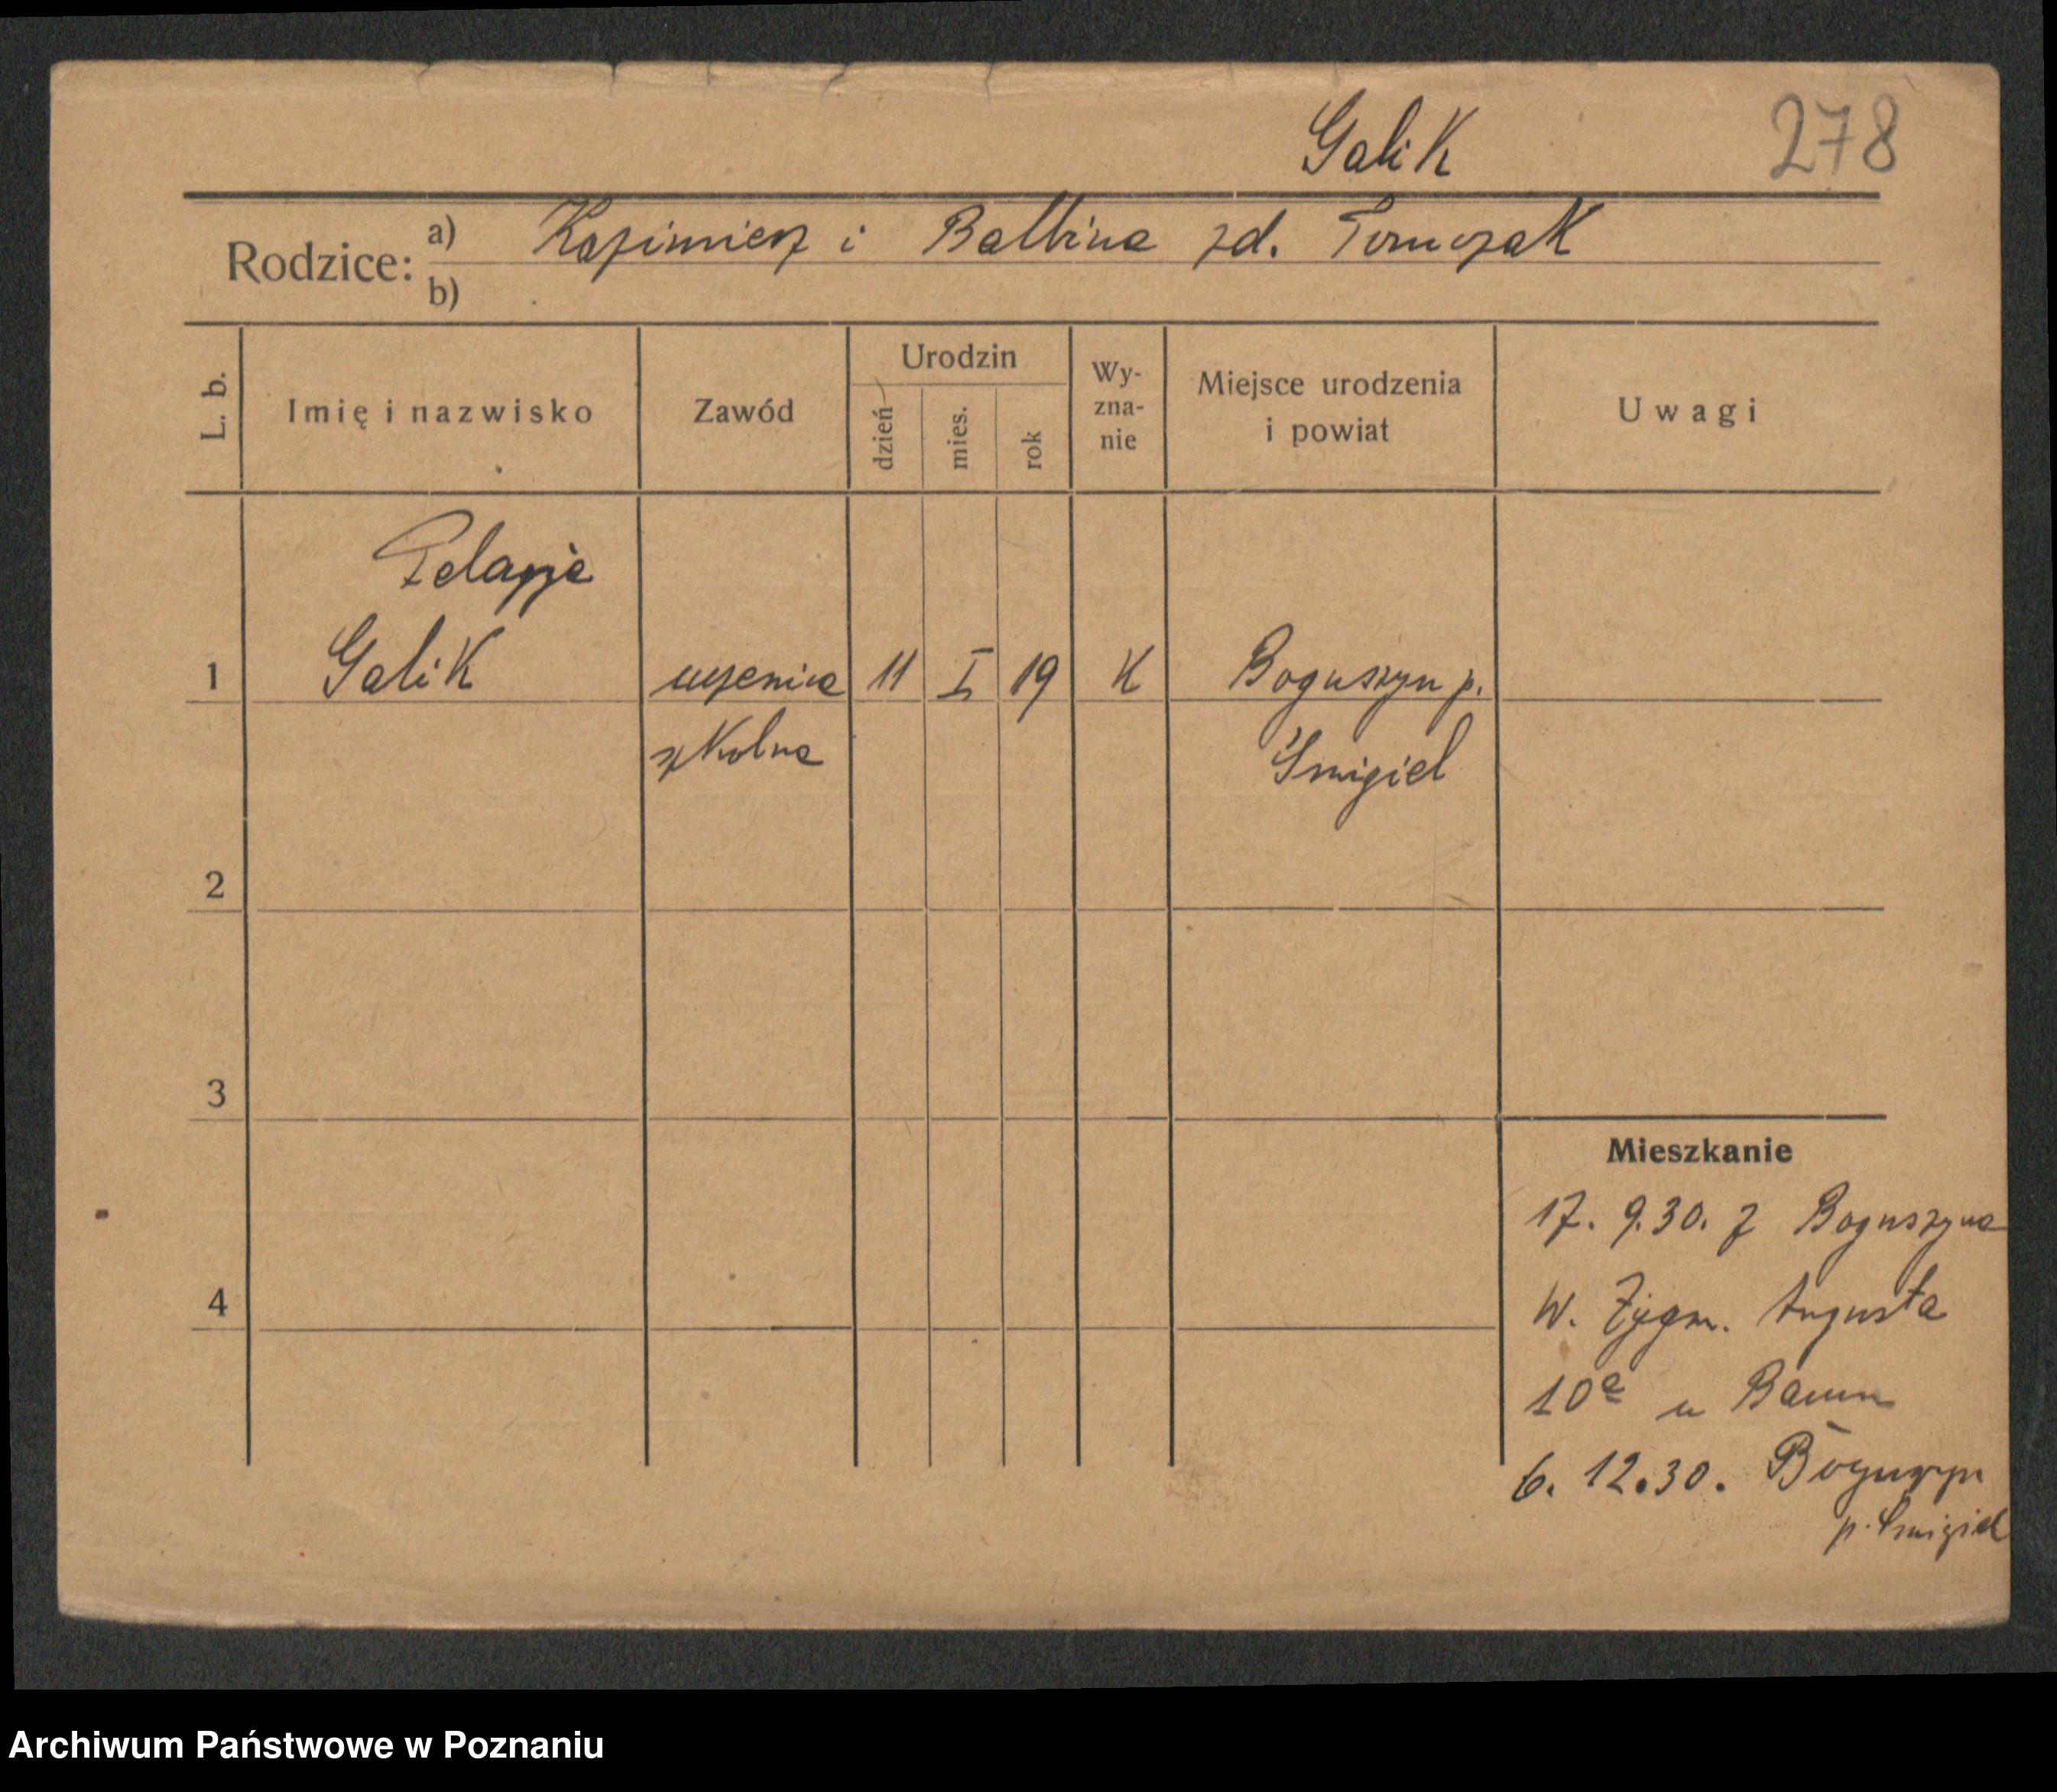 Galik 278
Rodzice: a) Kazimierz i Balbina zd. Tomczak
b)
L. b. Imię i nazwisko Zawód Urodzin dzień mies. rok Wy-zna-nie Miejsce urodzenia i powiat Uwagi
Pelagja
1 Galik uczenica 11 I 19 K Boguszyn p.
szkolna Śmigiel
2
3
Mieszkanie
17. 9.30. z Boguszyna
4 W. Zygm. Augusta
10a u Baum
6. 12.30. Boguszyn
p. Śmigiel
Archiwum Państwowe w Poznaniu